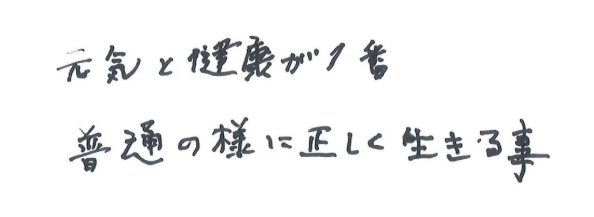 元気と健康が1番
普通の様に正しく生きる事